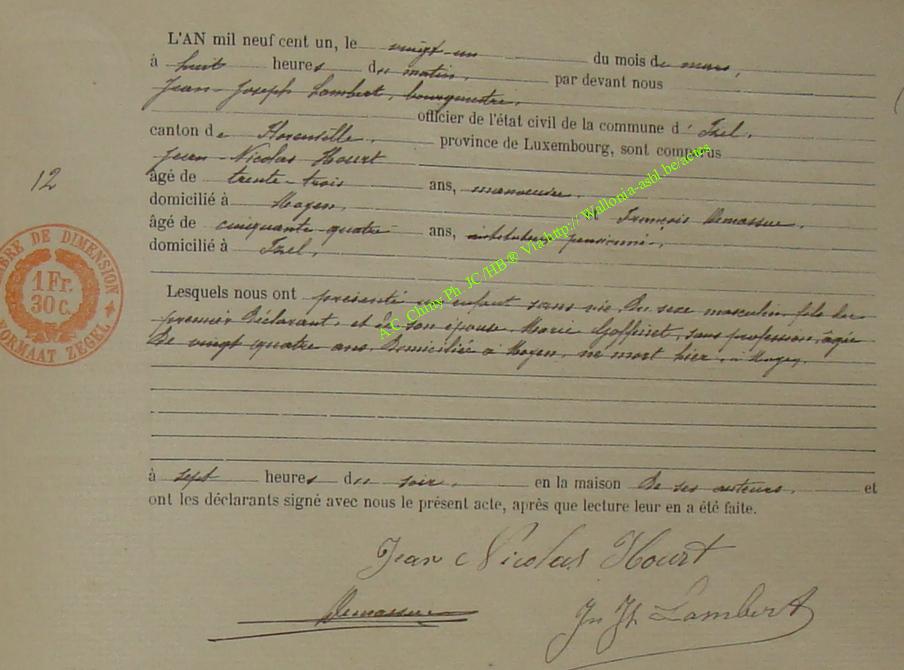 L'AN mil neuf cent un, le vingt-un du mois de mars,
à huit heures du matin, par devant nous
Jean-Joseph Lambert, bourgmestre,
officier de l'état civil de la commune d'Izel,
canton de Florenville, province de Luxembourg, sont comparus
Jean-Nicolas Hourt
12
âgé de trente-trois ans, manoeuvre,
domicilié à Moyen, François Demasure
âgé de cinquante-quatre ans, instituteur pensionné,
domicilié à Izel,
TIMBRE DE DIMENSION
1 Fr.
30 c.
FORMAAT ZEGEL
Lesquels nous ont présenté un enfant sans vie, du sexe masculin, fils du
premier déclarant, et de son épouse Marie Goffinet, sans profession, âgée
de vingt quatre ans, domiciliée à Moyen, né mort hier, à Moyen,
à sept heures du soir, en la maison de ses auteurs, et
ont les déclarants signé avec nous le présent acte, après que lecture leur en a été faite.
Jean Nicolas Hourt
Jn Jh Lambert
A.C. Chiny Ph. JC /HB ® Via http:// Wallonia-asbl.be/actes